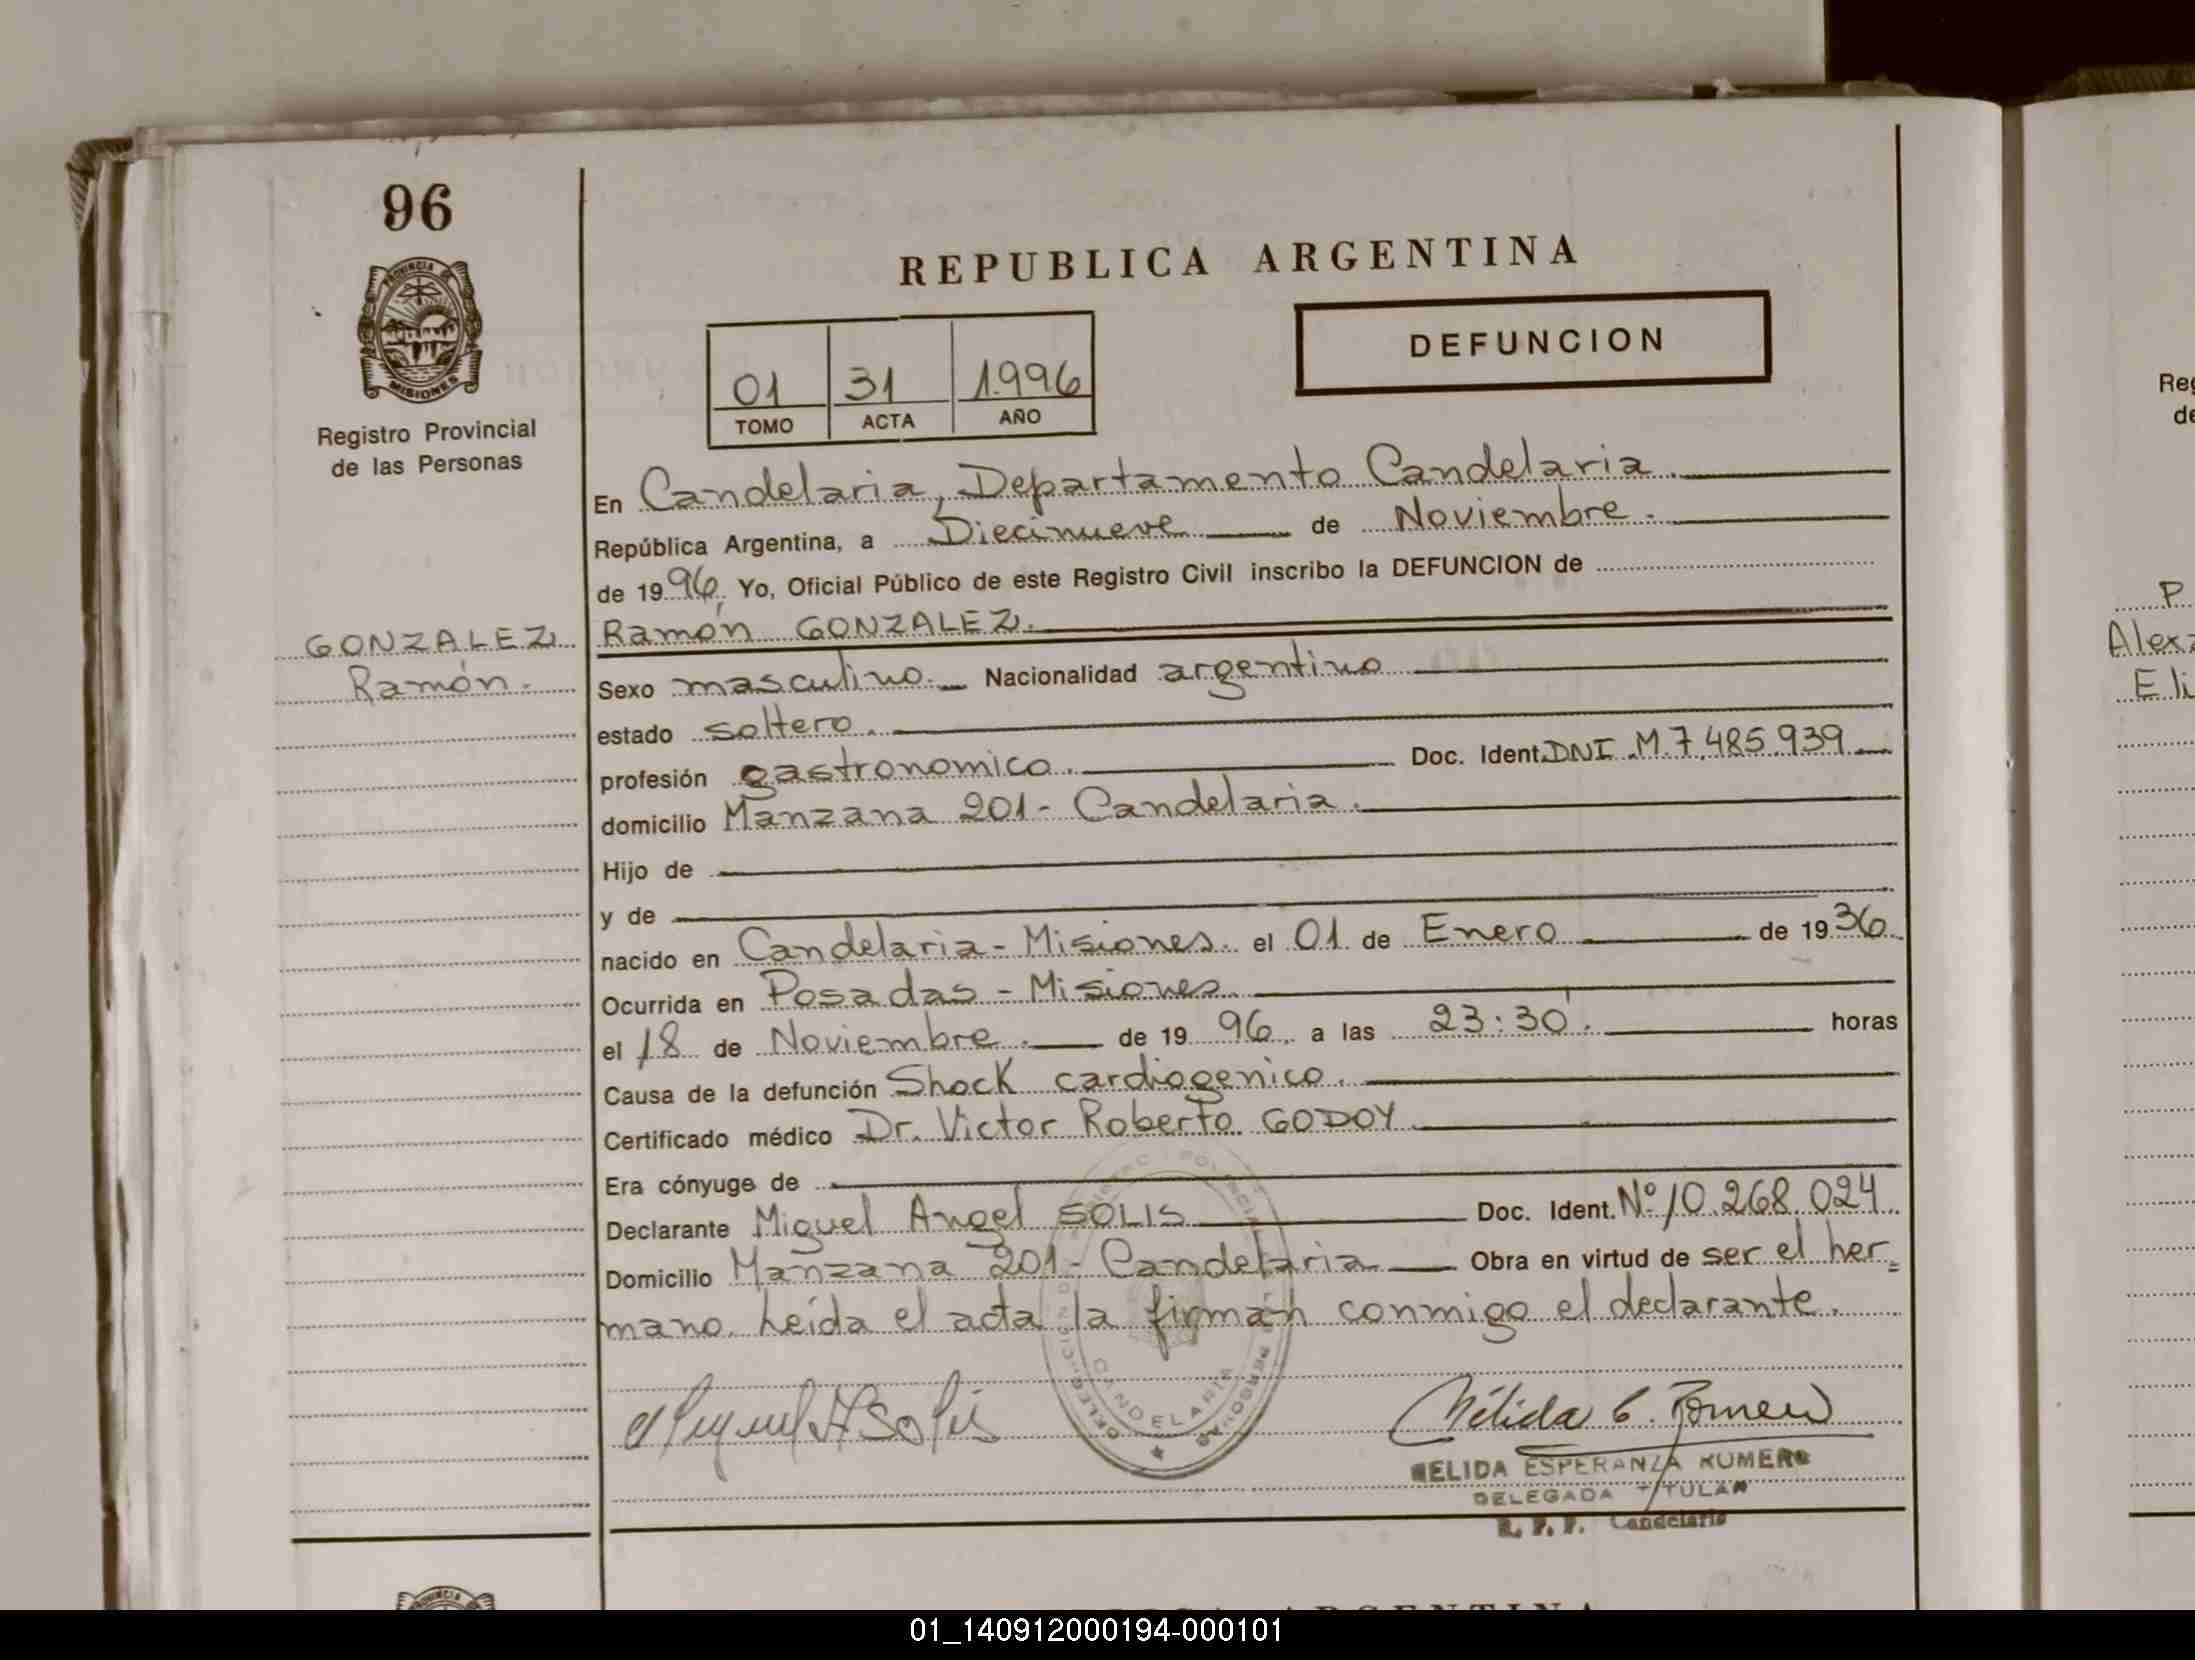 96
PROVINCIA DE
MISIONES
Registro Provincial
de las Personas
REPUBLICA ARGENTINA
01 31 1.996
TOMO ACTA AÑO
DEFUNCION
En Candelaria, Departamento Candelaria.
República Argentina, a Diecinueve de Noviembre.
de 1996, Yo, Oficial Público de este Registro Civil inscribo la DEFUNCION de
GONZALEZ
Ramón.
Ramón GONZALEZ.
Sexo masculino. Nacionalidad argentino
estado soltero.
profesión gastronomico. Doc. Ident. DNI M.7.485.939
domicilio Manzana 201- Candelaria.
Hijo de
y de
nacido en Candelaria - Misiones. el 01 de Enero de 1936
Ocurrida en Posadas - Misiones.
el 18 de Noviembre. de 1996, a las 23:30'. horas
Causa de la defunción Shock cardiogenico.
Certificado médico Dr. Victor Roberto GODOY
Era cónyuge de
Declarante Miguel Angel SOLIS Doc. Ident. Nº 10.268.024
Domicilio Manzana 201- Candelaria Obra en virtud de ser el her=
mano. Leída el acta la firmán conmigo el declarante.
Miguel A Solis
Nélida E. Romero
NELIDA ESPERANZA ROMERO
DELEGADA TITULAR
R. P. P. Candelaria
CANDELARIA
Reg
de
P
Alex
Eli
01_140912000194-000101